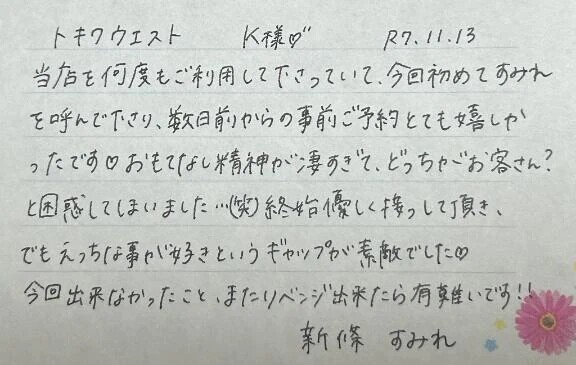 トキワウエスト K様♡ R7.11.13
当店を何度もご利用して下さっていて、今回初めてすみれ
を呼んで下さり、数日前からの事前ご予約とても嬉しか
ったです♡おもてなし精神が凄すぎて、どっちがお客さん?
と困惑してしまいました…(笑)終始優しく接っして頂き、
でもえっちな事が好きというギャップが素敵でした♡
今回出来なかったこと、またリベンジ出来たら有難いです!!
新條 すみれ